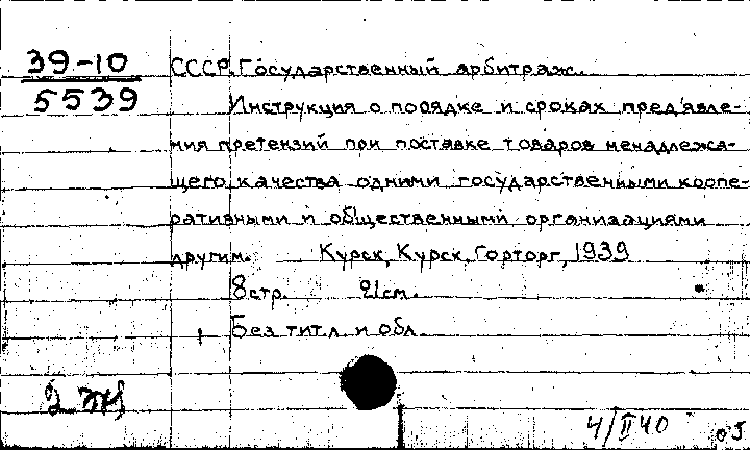 39-10
5539
СССР. Государственный арбитраж.
Инструкция о порядке и сроках пред'явле-
ния претензий при поставке товаров ненадлежа-
щего качества одними государственными коопе-
ративными и общественными организациями
другим. Курск, Курск. Горторг, 1939
8 стр. 21 см.
Без тит. л. и обл.
4/II 40